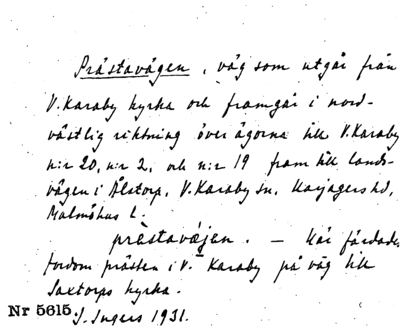 Prästavägen, väg som utgår från
V. Karaby kyrka och framgår i nord-
västlig riktning över ägorna till V. Karaby
n:r 20, n:r 2, och n:r 19 fram till lands-
vägen i Ålstorp, V. Karaby sn, Harjagers hd,
Malmöhus l.
prèstavæjen. — Här färdades
fordom prästen i V. Karaby på väg till
Saxtorps kyrka.
Nr 5615.
I. Ingers 1931.